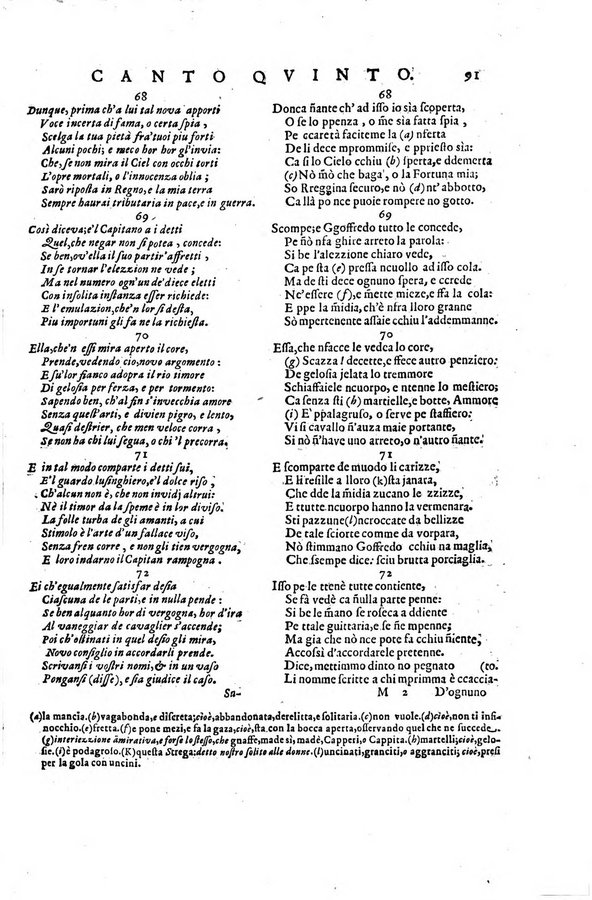 CANTO QVINTO. 91
68
Dunque, prima ch'a lui tal nova apporti
Voce incerta di fama, o certa spia,
Scelga la tua pietà fra' tuoi piu forti
Alcuni pochi; e meco hor hor gl'invia:
Che, se non mira il Ciel con occhi torti
L'opre mortali, o l'innocenza oblia;
Sarò riposta in Regno, e la mia terra
Sempre haurai tributaria in pace, e in guerra.
69
Così diceva; e'l Capitano a i detti
Quel, che negar non si potea, concede:
Se ben, ov'ella il suo partir'affretti,
In se tornar l'elezzion ne vede;
Ma nel numero ogn'un de' diece eletti
Con insolita instanza esser richiede:
E l'emulazion, che'n lor si desta,
Piu importuni gli fa ne la richiesta.
70
Ella, che'n essi mira aperto il core,
Prende, vedendo ciò, novo argomento:
E su'l or fianco adopra il rio timore
Di gelosia per ferza, e per tormento:
Sapendo ben, ch'al fin s'invecchia amore
Senza quest'arti, e divien pigro, e lento,
Quasi destrier, che men veloce corra,
Se non ha chi lui segua, o chi'l precorra.
71
E in tal modo comparte i detti sui,
E'l guardo lusinghiero, e'l dolce riso,
Ch'alcun non è, che non invidj altrui:
Nè il timor da la speme è in lor diviso.
La folle turba de gli amanti, a cui
Stimolo è l'arte d'un fallace viso,
Senza fren corre, e non gli tien vergogna,
E loro indarno il Capitan rampogna.
72
Ei ch'egualmente satisfar desia
Ciascuna de le parti, e in nulla pende:
Se ben alquanto hor di vergogna, hor d'ira
Al vaneggiar de cavaglier s'accende;
Poi ch'ostinati in quel desio gli mira,
Novo consiglio in accordarli prende.
Scrivansi i vostri nomi, & in un vaso
Pongansi (disse), e sia giudice il caso.
Su-
68
Donca ñante ch' ad isso io sia scoperta,
O se lo ppenza, o m̃e sia fatta spia,
Pe ccaretà faciteme la (a) nferta
De li diece mprommise, e ppriesto sia:
Ca si lo Cielo cchiu (b) sperta, e ddemerta
(c) Nò m̃o che baga', o la Fortuna mia;
So Rreggina securo, e nò (d) nt' abbotto,
Ca llà po nce puoie rompere no gotto.
69
Scompe; e Ggoffredo tutto le concede,
Pe nñ fa ghire arreto la parola:
Si be l'alezzione chiaro vede,
Ca pe sta (e) pressa ncuollo ad isso cola.
Ma de sti dece ognuno spera, e ccrede
Ne' essere (f), e m̃ette mieze, e ffa la cola:
E ppe la m̃idia, ch'è nfra lloro granne
Sò mpertenente assaie cchiu l'addemmanne.
70
Essa, che nfacce le vedea lo core,
(g) Scazza l decette, e ffece autro penziero:
De gelosia jelata lo tremmore
Schiaffaiele ncuorpo, e ntenne lo mestiero;
Ca senza sti (h) martielle, e botte, Ammore
(i) E' ppalagruso, o serve pe staffiero:
Vi si cavallo n'auza maie portante,
Si nò n'have uno arreto, o n'autro ñante.
71
E scomparte de muodo li carizze,
E li resille a lloro (k) sta janara,
Che dde la m̃idia zucano le zzizze,
E ttutte ncuorpo hanno la vermenara.
Sti pazzune (l) ncroccate da bellizze
De tale sciorte comme da vorpara,
Nò stimmano Goffredo cchiu na maglia,
Che ssempe dice: sciù brutta porciaglia.
72
Isso pe le ttenè tutte contiente,
Se sfà vedè ca ñulla parte penne:
Si be le mano se roseca a ddiente
Pe ttale guittaria, e se ñe mpenne;
Ma gia che nò nce pote fa cchiu ñiente,
Accossì d'accordarele pretenne.
Dice, mettimmo dinto no pegnato (to.
Li nomme scritte a chi mprimma è ccaccia-
M 2 D'ognuno
(a) la mancia. (b) vagabonda, e diserta; cioè, abbandonata, derelitta, e solitaria. (c) non vuole. (d) cioè, non ti infi-
nocchio. (e) fretta. (f) e pone mezi, e fa la gaza, cioè, sta con la bocca aperta, osservando quel che ne succede.
(g) interiezione amirativa, e forse lo stesso, che gnaffe, made sì, madè, Capperi, o Cappita. (h) martelli; cioè, gelo-
sie. (i) è podagroso. (K) questa Strega: detto nostro solito alle donne. (l) uncinati, granciti, o aggranciti; cioè, presi
per la gola con uncini.